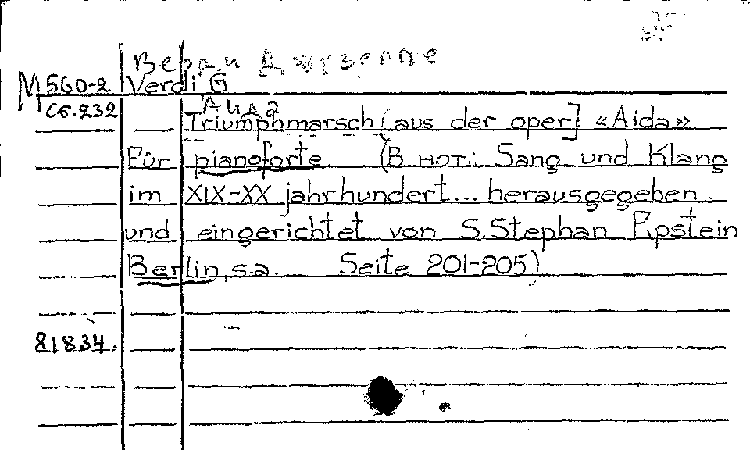 Верди Джузеппе
М 560-2 Verdi G
Сб.232 Аида
Triumphmarsch [aus der oper] «Aida»
Für pianoforte (В нот.: Sang und Klang
im XIX-XX jahrhundert... herausgegeben
und eingerichtet von S. Stephan Epstein
Berlin, s.a. Seite 201-205)
81834.